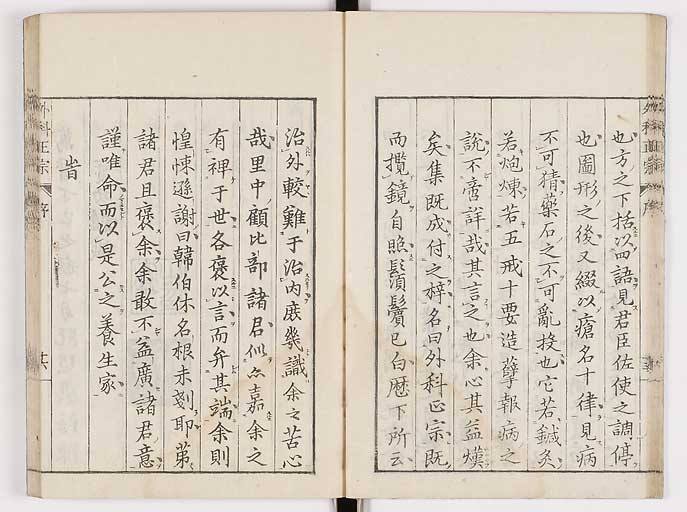 外科正宗 序
也方之下括以四語見君臣佐使之調停
也圖形之後又綴以瘡名十律見病
不可猜藥石之不可亂投也它若鍼灸
若炮煉若五戒十要造孽報病之
說不啻詳哉其言之也余心其益熯
矣集既成付之梓名曰外科正宗既
而攬鏡自照鬚鬢已白歷下所云
治外較難于治内庶幾識余之苦心
哉里中顧比部諸君似亦嘉余之
有裨于世各褒以言而弁其端余則
惶悚遜謝曰韓伯休名根未剗耶苐
諸君且褒余余敢不益廣諸君意
謹唯命而以是公之養生家
旹
外科正宗 序